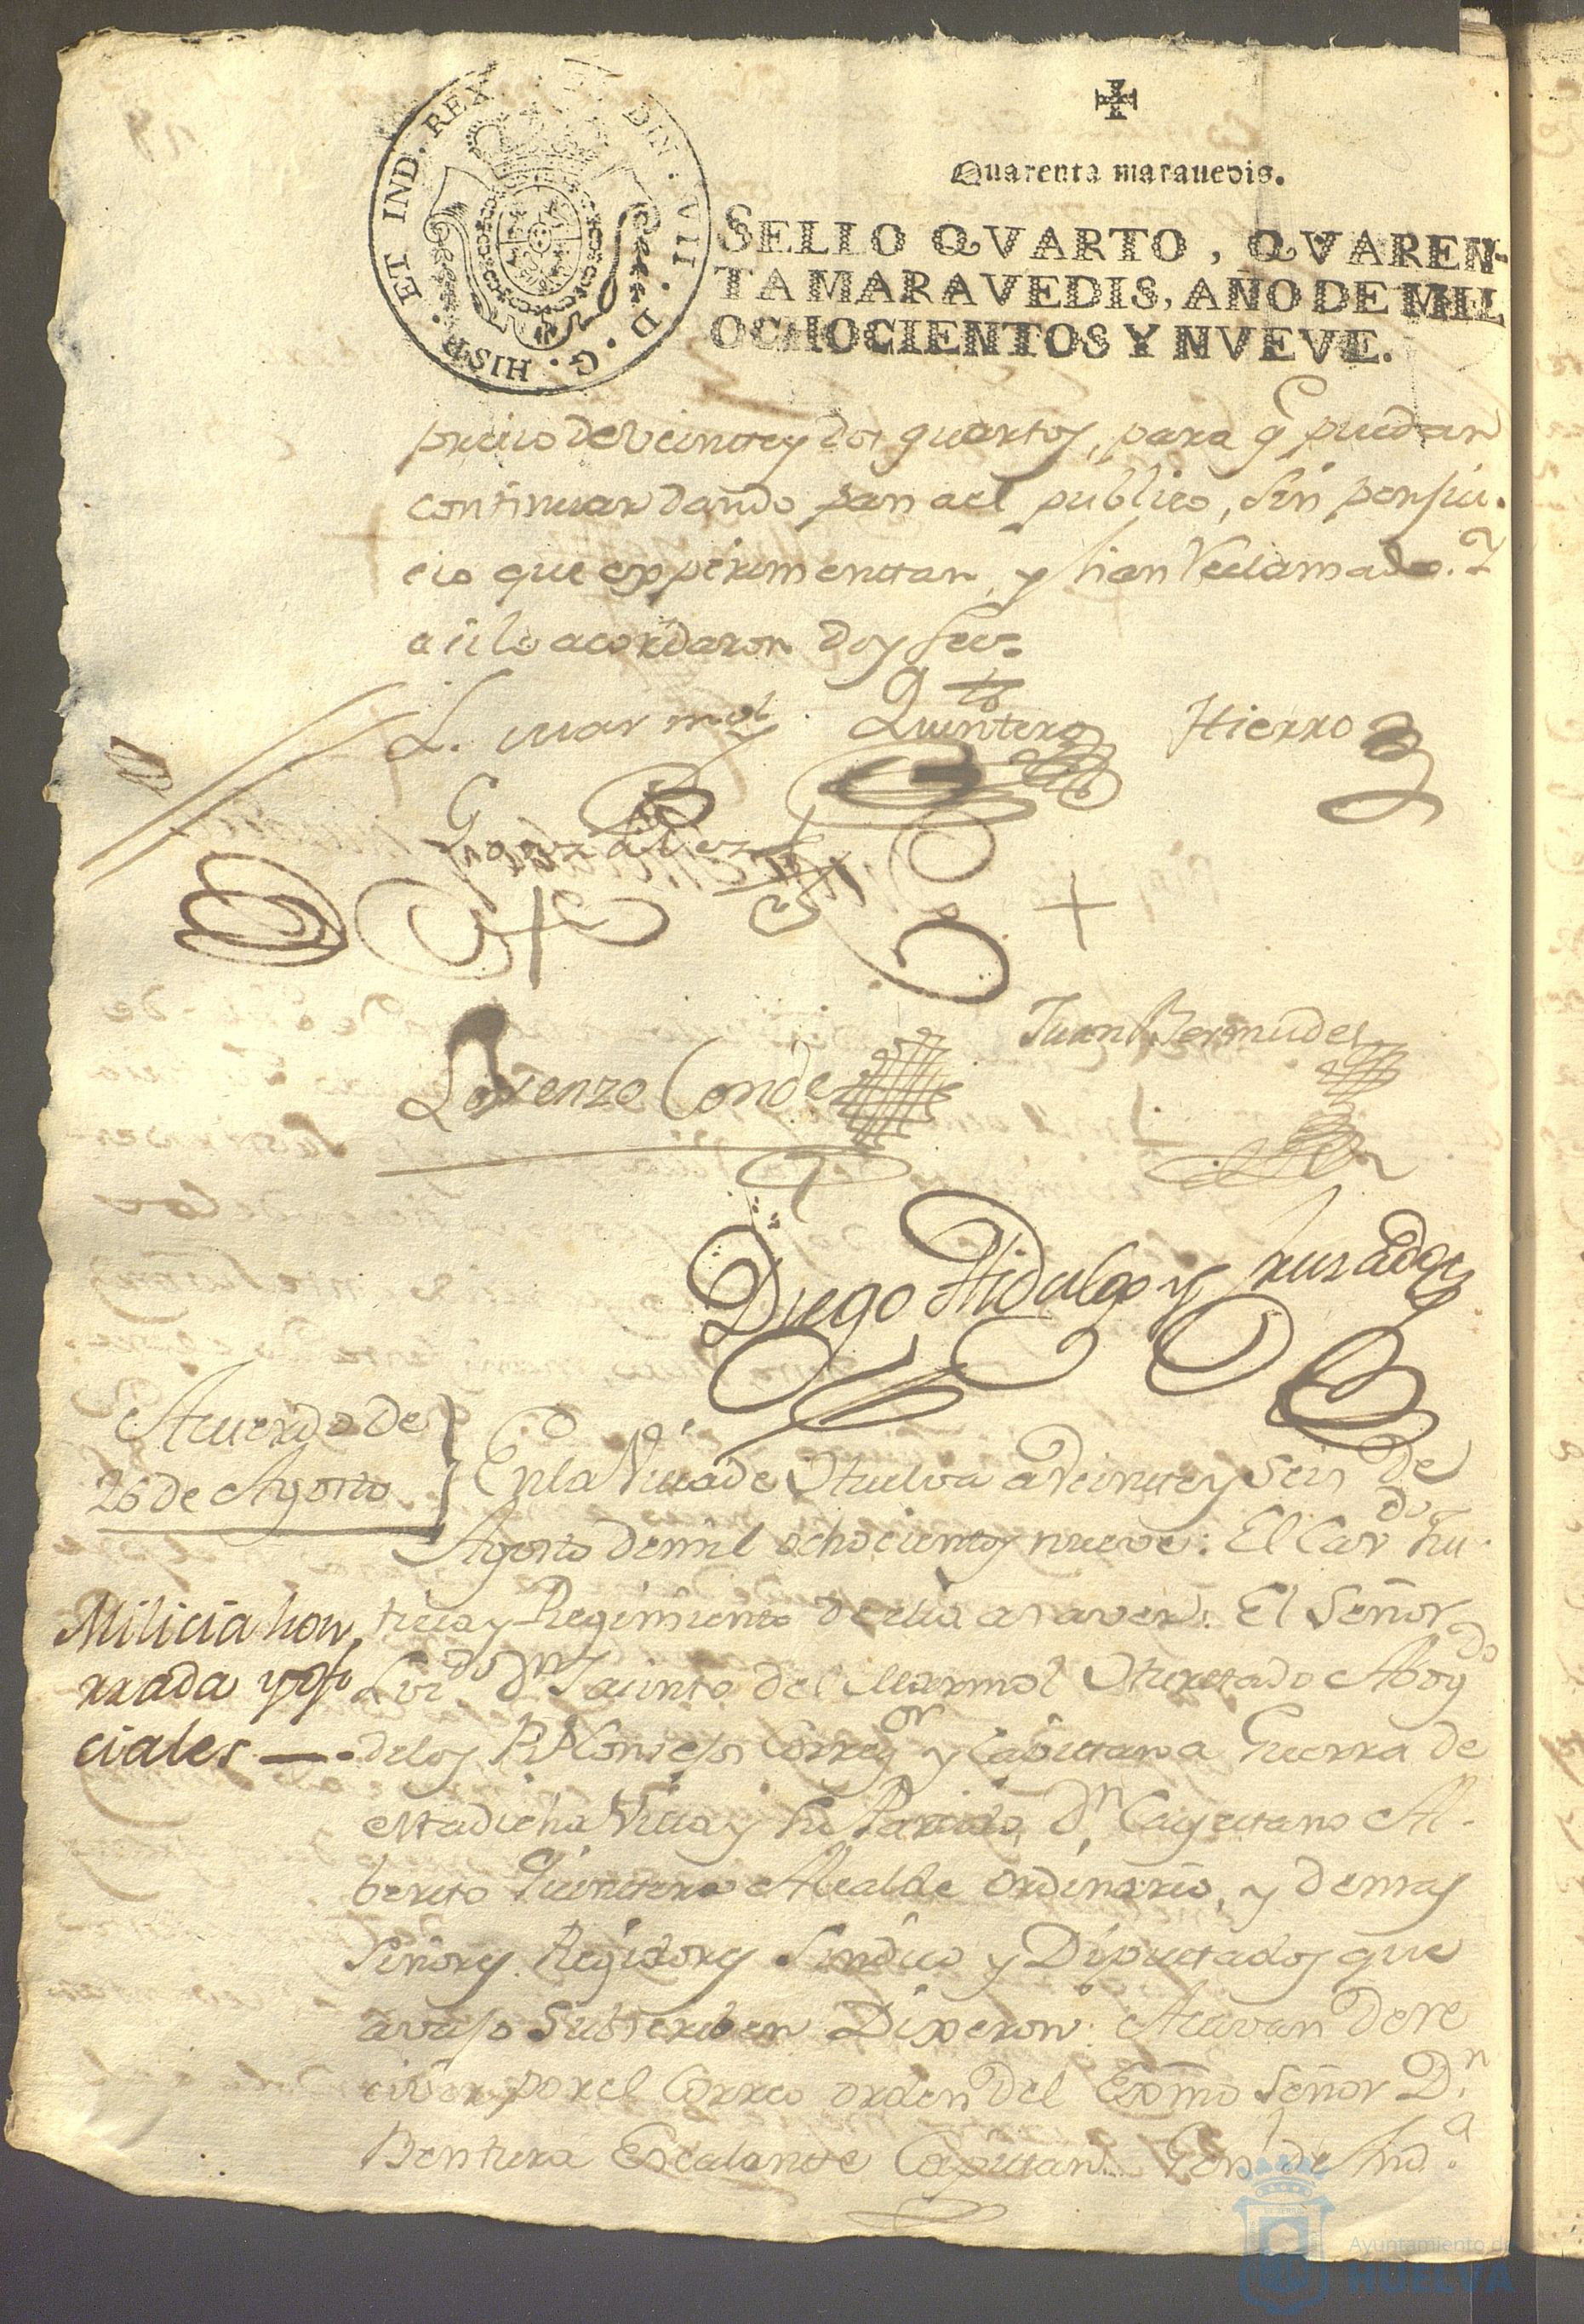 ET IND. REX
DIN. VII. D. G. HISP.
Quarenta maravedis.
SELLO QVARTO, QVAREN-
TA MARAVEDIS, AÑO DE MIL
OCHOCIENTOS Y NVEVE.
precio de veinte y dos quartos, para q puedan
continuar dando pan ael publico, sin perjui.
cio que experimentan, y han reclamado. Y
asi lo acordaron doy fee=
L. Marmol
Quintero
Hierro
Gonzalez
Juan Bermudez
Lorenzo Conde
Diego Hidalgo y Jurado
Acuerdo de
26 de Agosto
En la Villa de Huelva a veinte y seis de
Agosto de mil ochocientos nueve: El Cavdo Jus
Milicia hon
rrada y ofi
ciales
ticia y Regimiento de ella a saver: El Señor
Licdo Dn Jacinto del Marmol Hurtado Abogdo
de los Rs Consejos Corregor y Capitan a Guerra de
esta dicha Villa y su Partido, Dn Cayetano Al-
berto Quintero Alcalde ordinario, y demas
Señores Regidores Sindico y Diputados que
avajo subscriben Dixeron: Acavan de re
civir por el Correo orden del Exmo Señor Dn
Bentura Escalante Capitan Genl de Anda
Ayuntamiento de
HUELVA